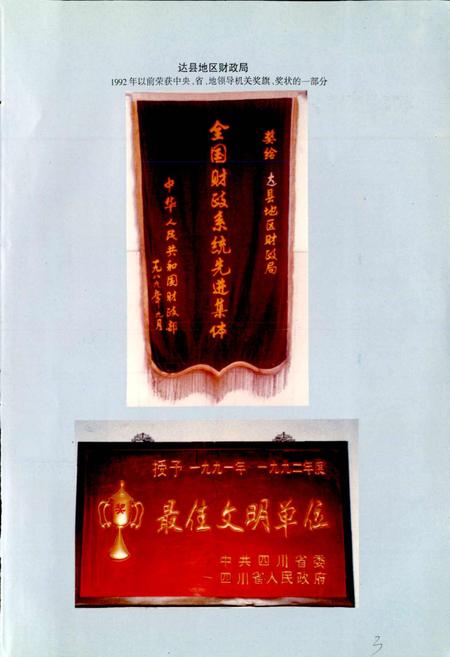 达县地区财政局
1992年以前荣获中央、省、地领导机关奖旗、奖状的一部分
奖给 达县地区财政局
全国财政系统先进集体
中华人民共和国财政部
一九八九年二月
授予一九九一年一九九二年度
奖
最佳文明单位
中共四川省委
四川省人民政府
3